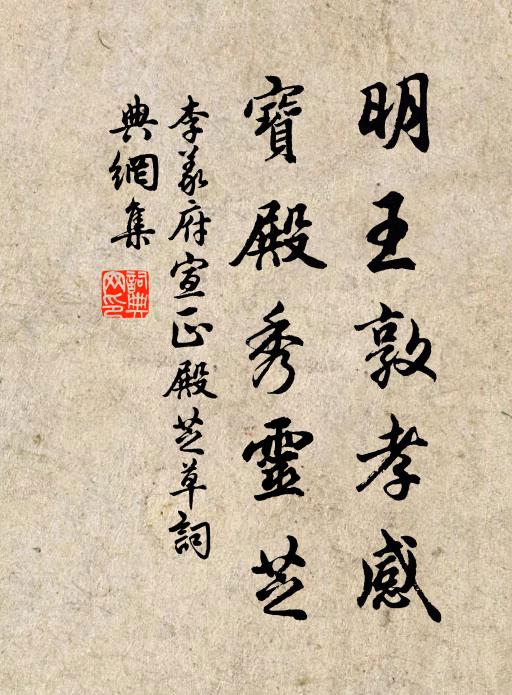 明王敦孝感
寶殿秀靈芝
李義府宣正殿芝草詞
典網集
詞典網印